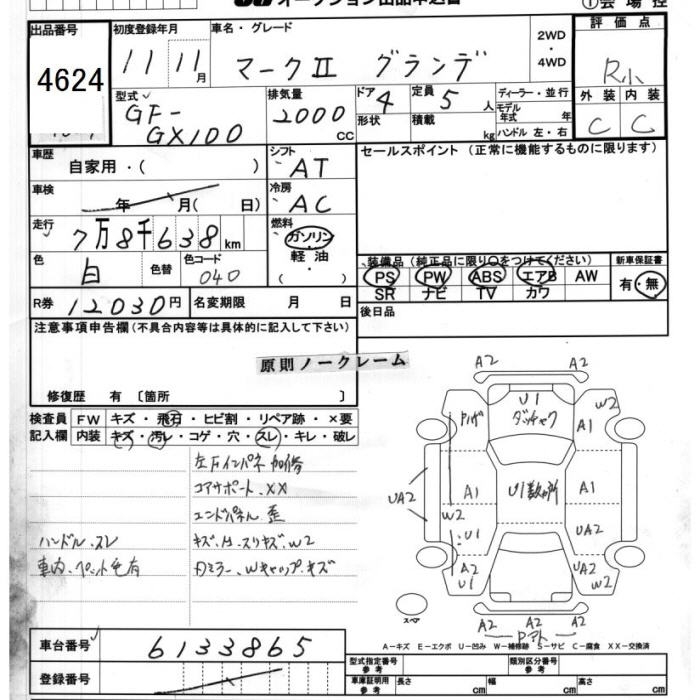 オークション出品申込書
①会場控
出品番号 初度登録年月 車名・グレード 2WD ・ 4WD 評価点
4624 11 11月 マークⅡ グランデ R小
型式 GF-GX100
排気量 2000 CC
ドア 4 定員 5人
形状 積載 kg
ディーラー・並行
モデル年式 年
ハンドル 左・右
外装 内装
C C
車歴 自家用・( )
シフト AT
セールスポイント (正常に機能するものに限ります)
車検 年 月( 日)
冷房 AC
走行 7万8千638km
燃料 ガソリン・軽油・( )
色 白 色替 色コード 040
装備品(純正品に限り○をつけてください) 新車保証書
PS PW ABS エアB AW 有・無
SR ナビ TV カワ
R券 12030円 名変期限 月 日
後日品
注意事項申告欄(不具合内容等は具体的に記入して下さい)
原則ノークレーム
修復歴 有 〔箇所 〕
検査員記入欄 FW キズ・飛石・ヒビ割・リペア跡・×要
内装 キズ・汚レ・コゲ・穴・スレ・キレ・破レ
コアサポート、XX
エンドパネル歪
ハンドル、スレ
A2 A2
U1 W2
A1
A1 U1数ヶ所 A1
UA2 W2
U1 UA2
A2 U1 UA2 W2
A2 A2
スペア
A2 A2
A-キズ E-エクボ U-凹み W-補修跡 S-サビ C-腐食 XX-交換済
車台番号 6133865
登録番号
型式指定番号 参考 類別区分番号 参考
車庫証明用 参考 長さ cm 幅 cm 高さ cm